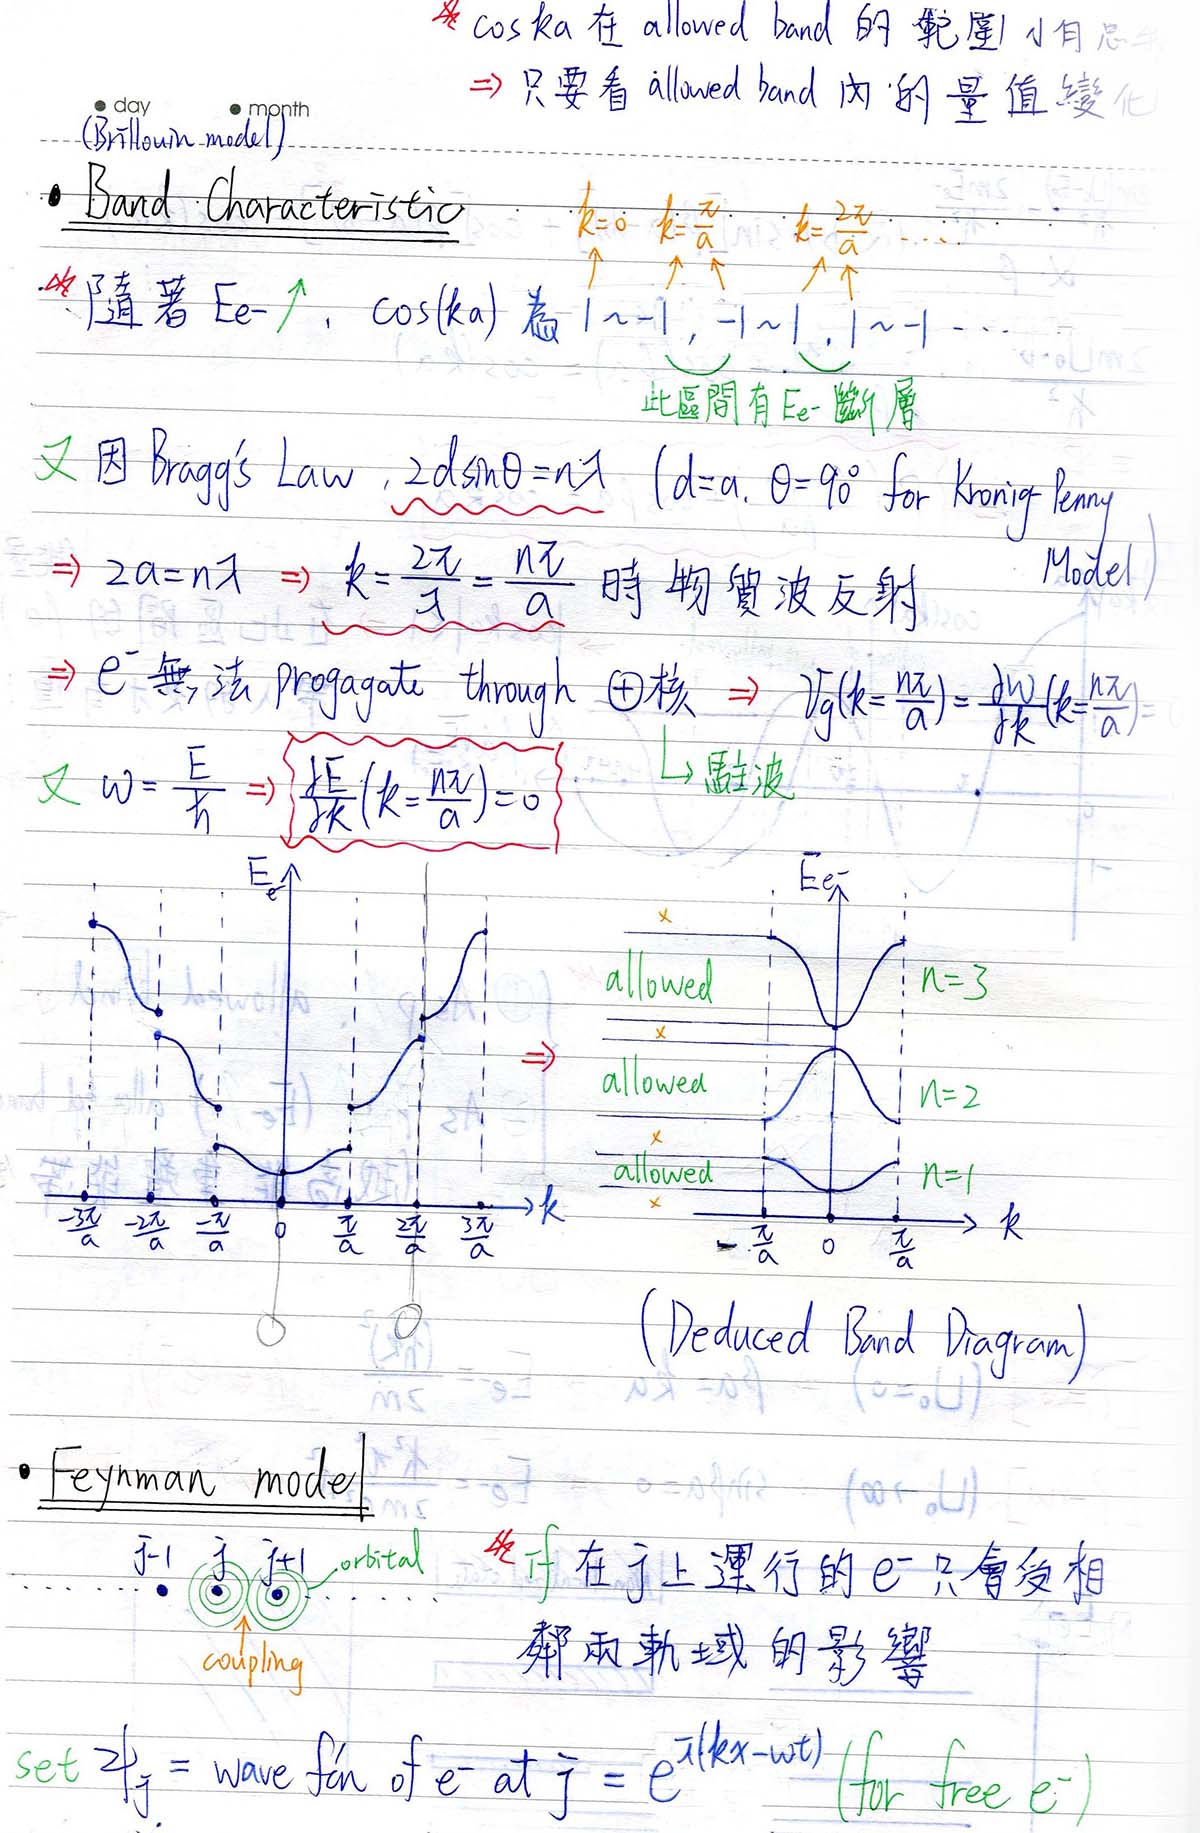 ※ cos ka 在 allowed band 的 範圍 小
⇒ 只要看 allowed band 內的量值變化
● day ● month
(Brillouin model)
• Band Characteristic
k=0 k=π/a k=2π/a ‥‥
※ 隨著 Ee- ↑, cos(ka) 為 1 ~ -1, -1 ~ 1, 1 ~ -1 ‥‥
此區間有 Ee- 斷層
又 因 Bragg's Law, 2dsinθ=nλ (d=a, θ=90° for Kronig-Penny
Model)
⇒ 2a=nλ ⇒ k=2π/λ=nπ/a 時物質波反射
⇒ e- 無法 progagate through ⊕核 ⇒ Vg(k=nπ/a)=∂w/∂k(k=nπ/a)=0
↳ 駐波
又 w=E/ħ ⇒ ∂E/∂k(k=nπ/a)=0
Ee-
-3π/a -2π/a -π/a 0 π/a 2π/a 3π/a k
⇒
Ee-
x
allowed n=3
x
allowed n=2
x
allowed n=1
x
-π/a 0 π/a k
(Deduced Band Diagram)
• Feynman model
j-1 j j+1 orbital
coupling
※ if 在 j 上運行的 e- 只會受相
鄰兩軌域的影響
set ψj = wave f'cn of e- at j = e^i(kx-wt) (for free e-)